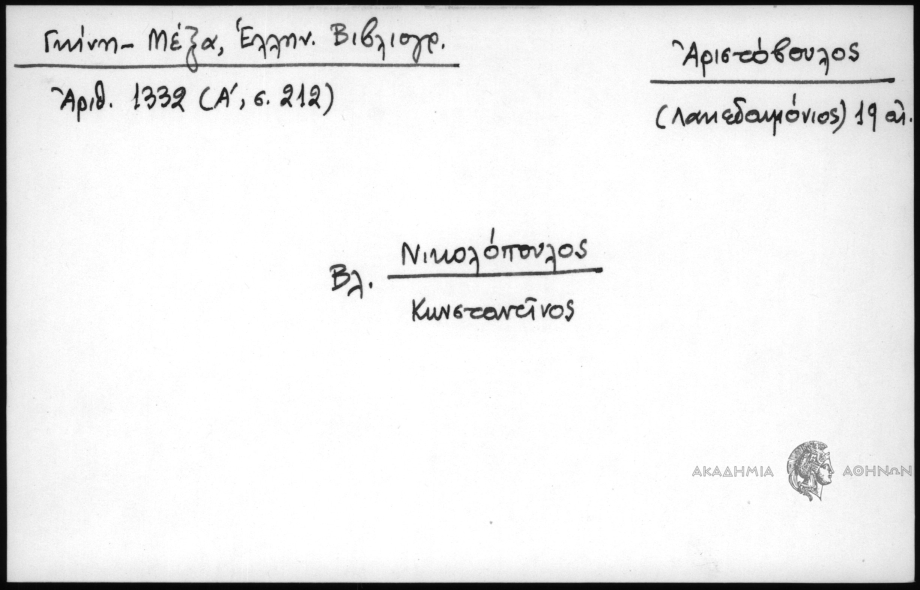 Γκίνη - Μέξα, Ἑλλην. Βιβλιογρ.
Ἀριθ. 1332 (Α΄, σ. 212)
Ἀριστόβουλος
(Λακεδαιμόνιος) 19 αἰ.
Βλ. Νικολόπουλος
Κωνσταντῖνος
ΑΚΑΔΗΜΙΑ ΑΘΗΝΩΝ